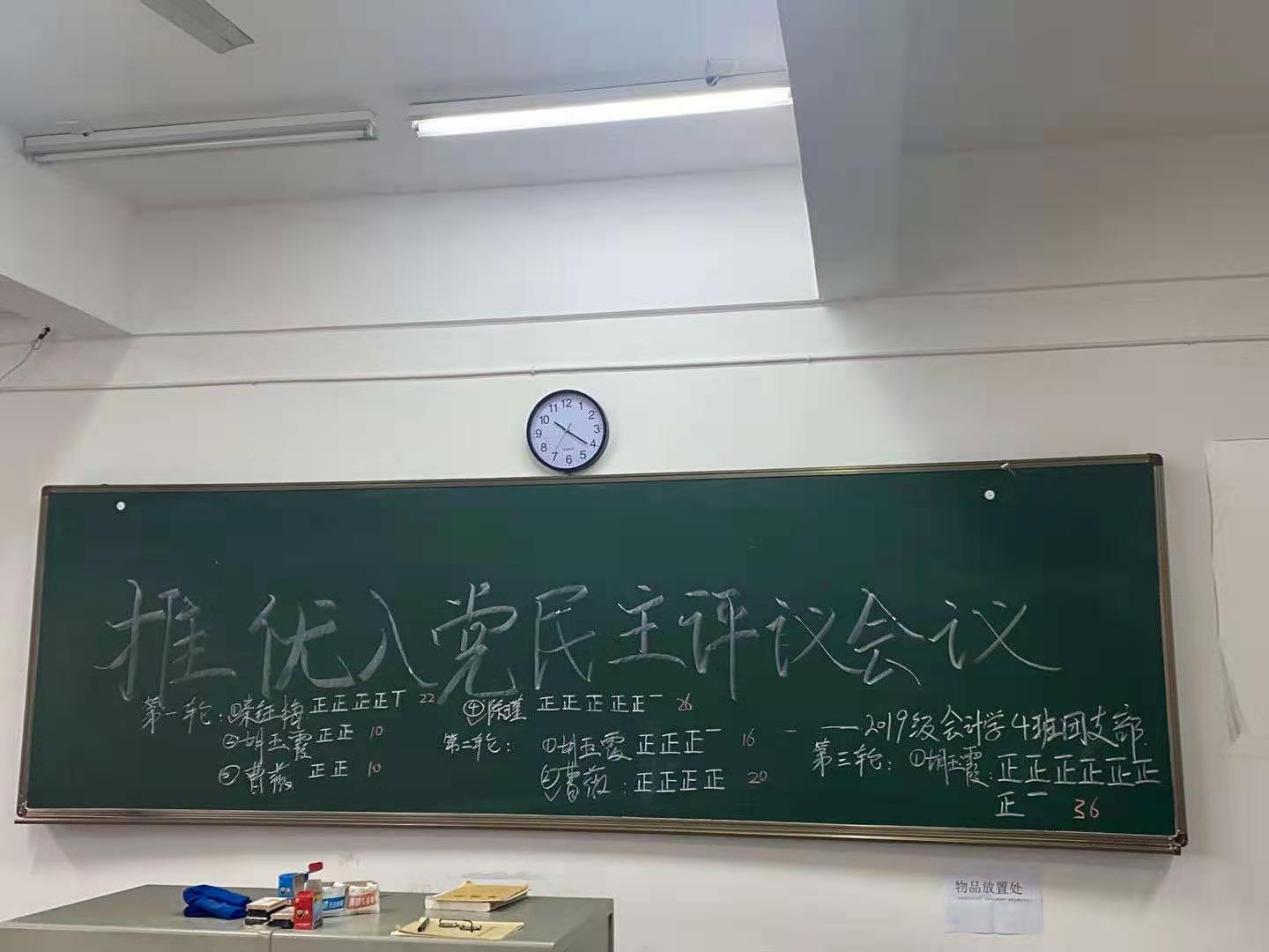 12 1 2 3 4 5 6 7 8 9 10 11
推优入党民主评议会议
——2019级会计学4班团支部
第一轮：① 正正正正丅 22
②胡玉霞 正正 10
③曹薇 正正 10
④陈瑾 正正正正正一 26
第二轮：①胡玉霞 正正正一 16
②曹薇：正正正正 20
第三轮：①胡玉霞：正正正正正正
正一 36
物品放置处